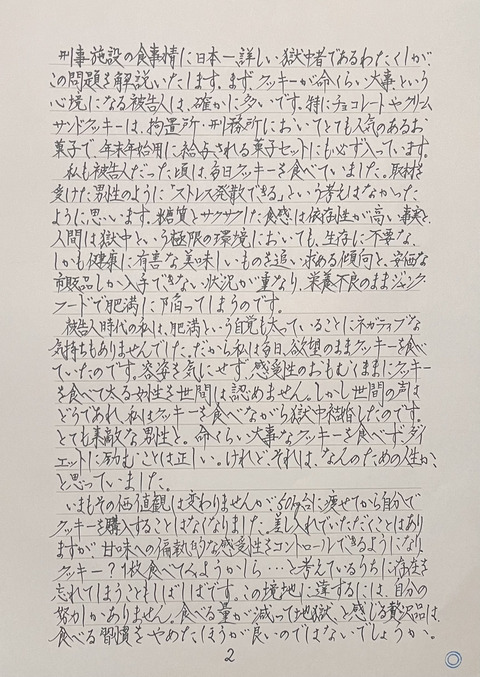 刑事施設の食事情に日本一詳しい獄中者であるわたくしが、
この問題を解説いたします。まず、クッキーが命くらい大事、という
心境になる被告人は、確かに多いです。特にチョコレートやクリーム
サンドクッキーは、拘置所・刑務所においてとても人気のあるお
菓子で、年末年始用に給与される菓子セットにも必ず入っています。
私も被告人だった頃は、毎日クッキーを食べていました。取材を
受けた男性のように「ストレス発散できる」という考えはなかった
ように思います。糖質とサクサクした食感は依存性が高い事実と、
人間は獄中という極限の環境においても、生存に不要な、
しかも健康に有害な美味しいものを追い求める傾向と、安価な
市販品しか入手できない状況が重なり、栄養不良のままジャンク
フードで肥満に陥ってしまうのです。
被告人時代の私は、肥満という自覚も太っていることにネガティブな
気持ちもありませんでした。だから私は毎日、欲望のままクッキーを食べ
ていたのです。容姿を気にせず、感受性のおもむくままにクッキー
を食べて太る女性を世間は認めません。しかし世間の声は
どうであれ、私はクッキーを食べながら獄中結婚したのです。
とても素敵な男性と。命くらい大事なクッキーを食べず、ダイ
エットに励むことは正しい。けれど、それは、なんのための人生か、
と思っていました。
いまもその価値観は変わりませんが、50kg台に痩せてから自分で
クッキーを購入することはなくなりました。差し入れでいただくことはあり
ますが、甘味への偏執的な感受性をコントロールできるようになり、
クッキー?1枚食べてみようかしら…と考えているうちに存在を
忘れてしまうこともしばしばです。この境地に達するには、自分の
努力しかありません。食べる量が減って地獄、と感じる贅沢品は、
食べる習慣をやめたほうが良いのではないでしょうか。
2